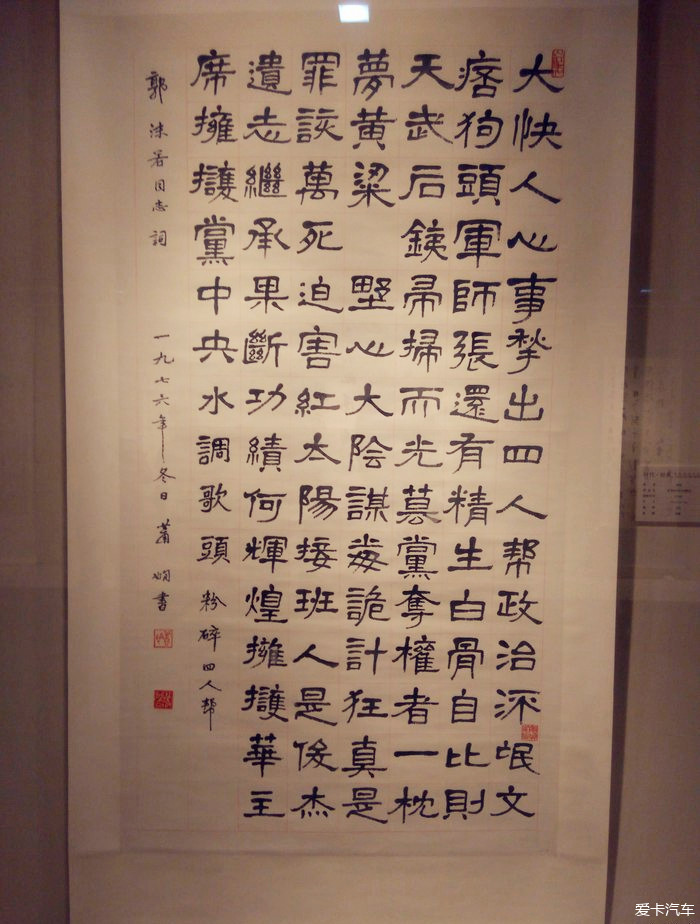 大快人心事揫出四人帮政治流氓文
痞狗頭軍師張還有精生白骨自比則
天武后銕帚掃而光篡黨奪權者一枕
夢黄粱 野心大陰謀毒詭計狂真是
罪該萬死迫害紅太陽接班人是俊杰
遺志繼承果斷功績何輝煌擁護華主
席擁護黨中央水調歌頭 粉碎四人帮
郭沫若同志詞 一九七六年冬日 蕭嫻書
爱卡汽车